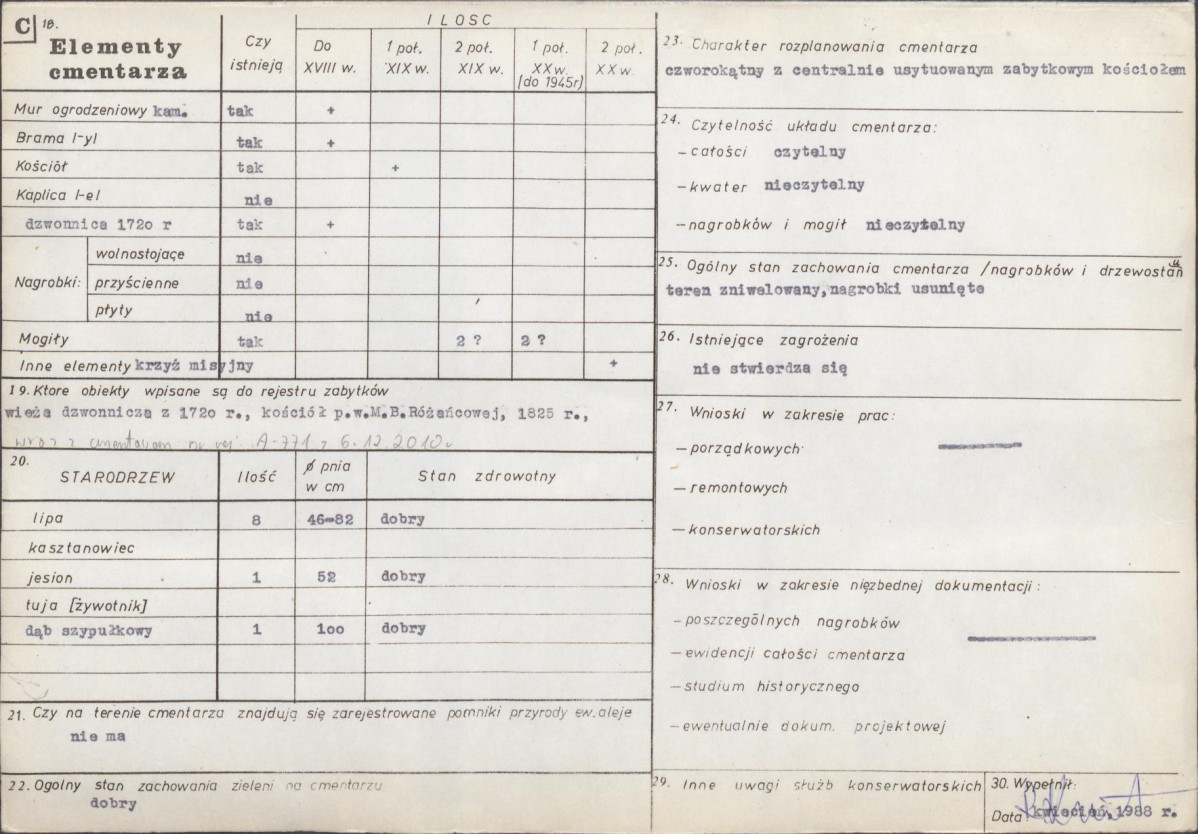 C 18.
Elementy cmentarza
Czy istnieją
ILOSC
Do XVIII w.
1 poł. XIX w.
2 poł. XIX w.
1 poł. XX w. [do 1945r]
2 poł. XX w.
Mur ogrodzeniowy kam. tak +
Brama l-yl tak +
Kościół tak +
Kaplica l-el nie
dzwonnica 172o r tak +
Nagrobki: wolnostojące nie
przyścienne nie
płyty nie
Mogiły tak 2 ? 2 ?
Inne elementy krzyż misyjny +
19. Ktore obiekty wpisane są do rejestru zabytków
wieża dzwonnicza z 172o r., kościół p.w.M.B.Różańcowej, 1825 r.,
wraz z cmentarzem nr rej. A-771 z 6.12.2010 r
20.
STARODRZEW Ilość ø pnia w cm Stan zdrowotny
lipa 8 46-82 dobry
kasztanowiec
jesion 1 52 dobry
tuja [żywotnik]
dąb szypułkowy 1 1oo dobry
21. Czy na terenie cmentarza znajdują się zarejestrowane pomniki przyrody ew. aleje
nie ma
22. Ogolny stan zachowania zieleni na cmentarzu
dobry
23. Charakter rozplanowania cmentarza
czworokątny z centralnie usytuowanym zabytkowym kościołem
24. Czytelność układu cmentarza:
- całości czytelny
- kwater nieczytelny
- nagrobków i mogił nieczytelny
25. Ogólny stan zachowania cmentarza /nagrobków i drzewostanu
teren zniwelowany,nagrobki usunięte
26. Istniejące zagrożenia
nie stwierdza się
27. Wnioski w zakresie prac:
- porządkowych
- remontowych
- konserwatorskich
28. Wnioski w zakresie niezbędnej dokumentacji:
- poszczególnych nagrobków
- ewidencji całości cmentarza
- studium historycznego
- ewentualnie dokum. projektowej
29. Inne uwagi służb konserwatorskich
30. Wypełnił:
Data kwiecień 1988 r.